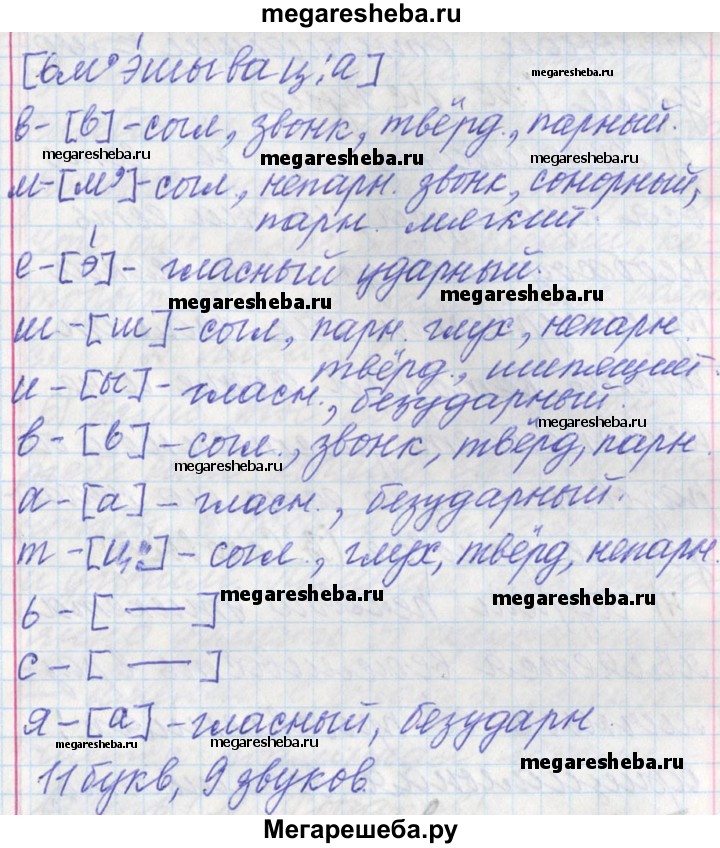 megaresheba.ru
[вм'э́шывац:а]
megaresheba.ru
в-[в]-согл, звонк, твёрд., парный.
megaresheba.ru megaresheba.ru megaresheba.ru
м-[м']-согл, непарн. звонк, сонорный,
парн. мягкий.
е-[э́]- гласный ударный.
megaresheba.ru megaresheba.ru
ш-[ш]-согл, парн. глух, непарн.
твёрд., шипящий.
и-[ы]- гласн., безударный.
megaresheba.ru
в-[в]-согл., звонк, твёрд, парн.
megaresheba.ru
а-[а]-гласн., безударный.
т-[ц:]-согл., глух, твёрд, непарн.
ь-[—]
megaresheba.ru megaresheba.ru
с-[—]
я-[а]-гласный, безударн.
megaresheba.ru megaresheba.ru megaresheba.ru
11 букв, 9 звуков
Мегарешеба.ру